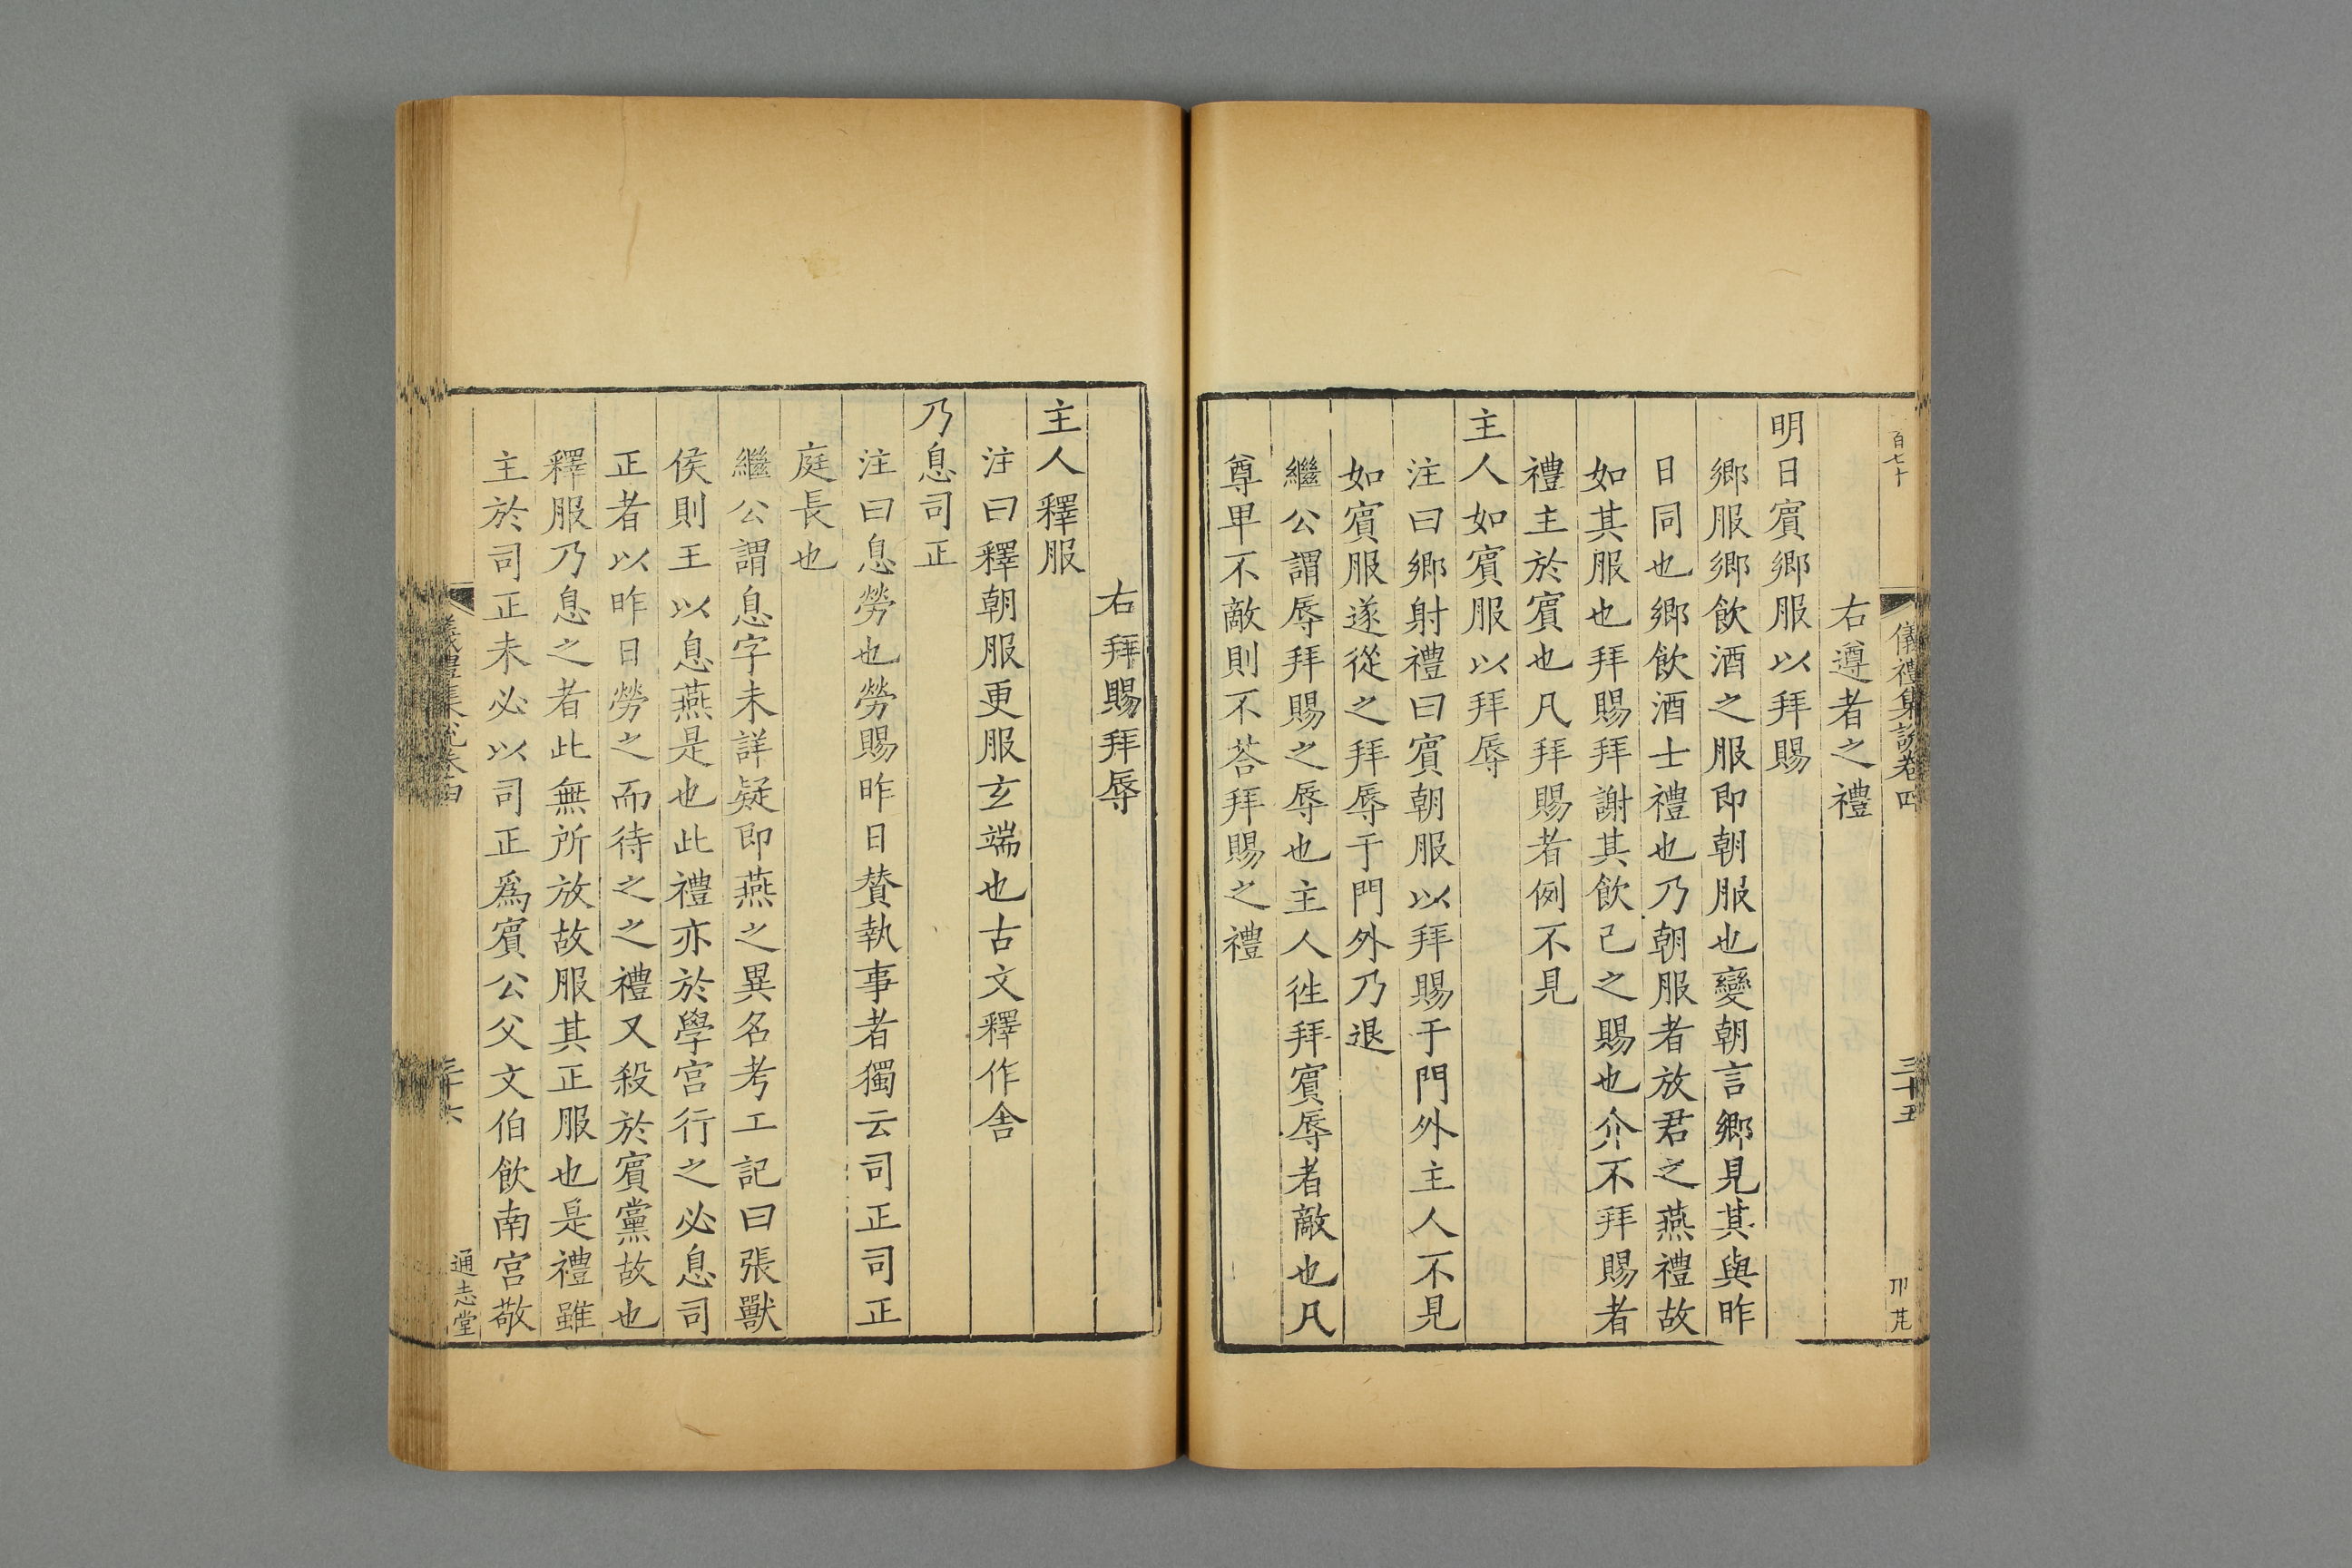 百七十
儀禮集說卷四
三十五
右遵者之禮
明日賔鄉服以拜賜
鄉服鄉飲酒之服即朝服也變朝言鄉見其與昨
日同也鄉飲酒士禮也乃朝服者放君之燕禮故
如其服也拜賜拜謝其飲己之賜也介不拜賜者
禮主於賔也凡拜賜者例不見
主人如賔服以拜辱
注曰鄉射禮曰賔朝服以拜賜于門外主人不見
如賔服遂從之拜辱于門外乃退
繼公謂辱拜賜之辱也主人徃拜賔辱者敵也凡
尊卑不敵則不荅拜賜之禮
右拜賜拜辱
主人釋服
注曰釋朝服更服玄端也古文釋作舍
乃息司正
注曰息勞也勞賜昨日賛執事者獨云司正司正
庭長也
繼公謂息字未詳疑即燕之異名考工記曰張獸
侯則王以息燕是也此禮亦於學宮行之必息司
正者以昨日勞之而待之之禮又殺於賔黨故也
釋服乃息之者此無所放故服其正服也是禮雖
主於司正未必以司正爲賔公父文伯飲南宮敬
儀禮集說卷四
三十六
通志堂